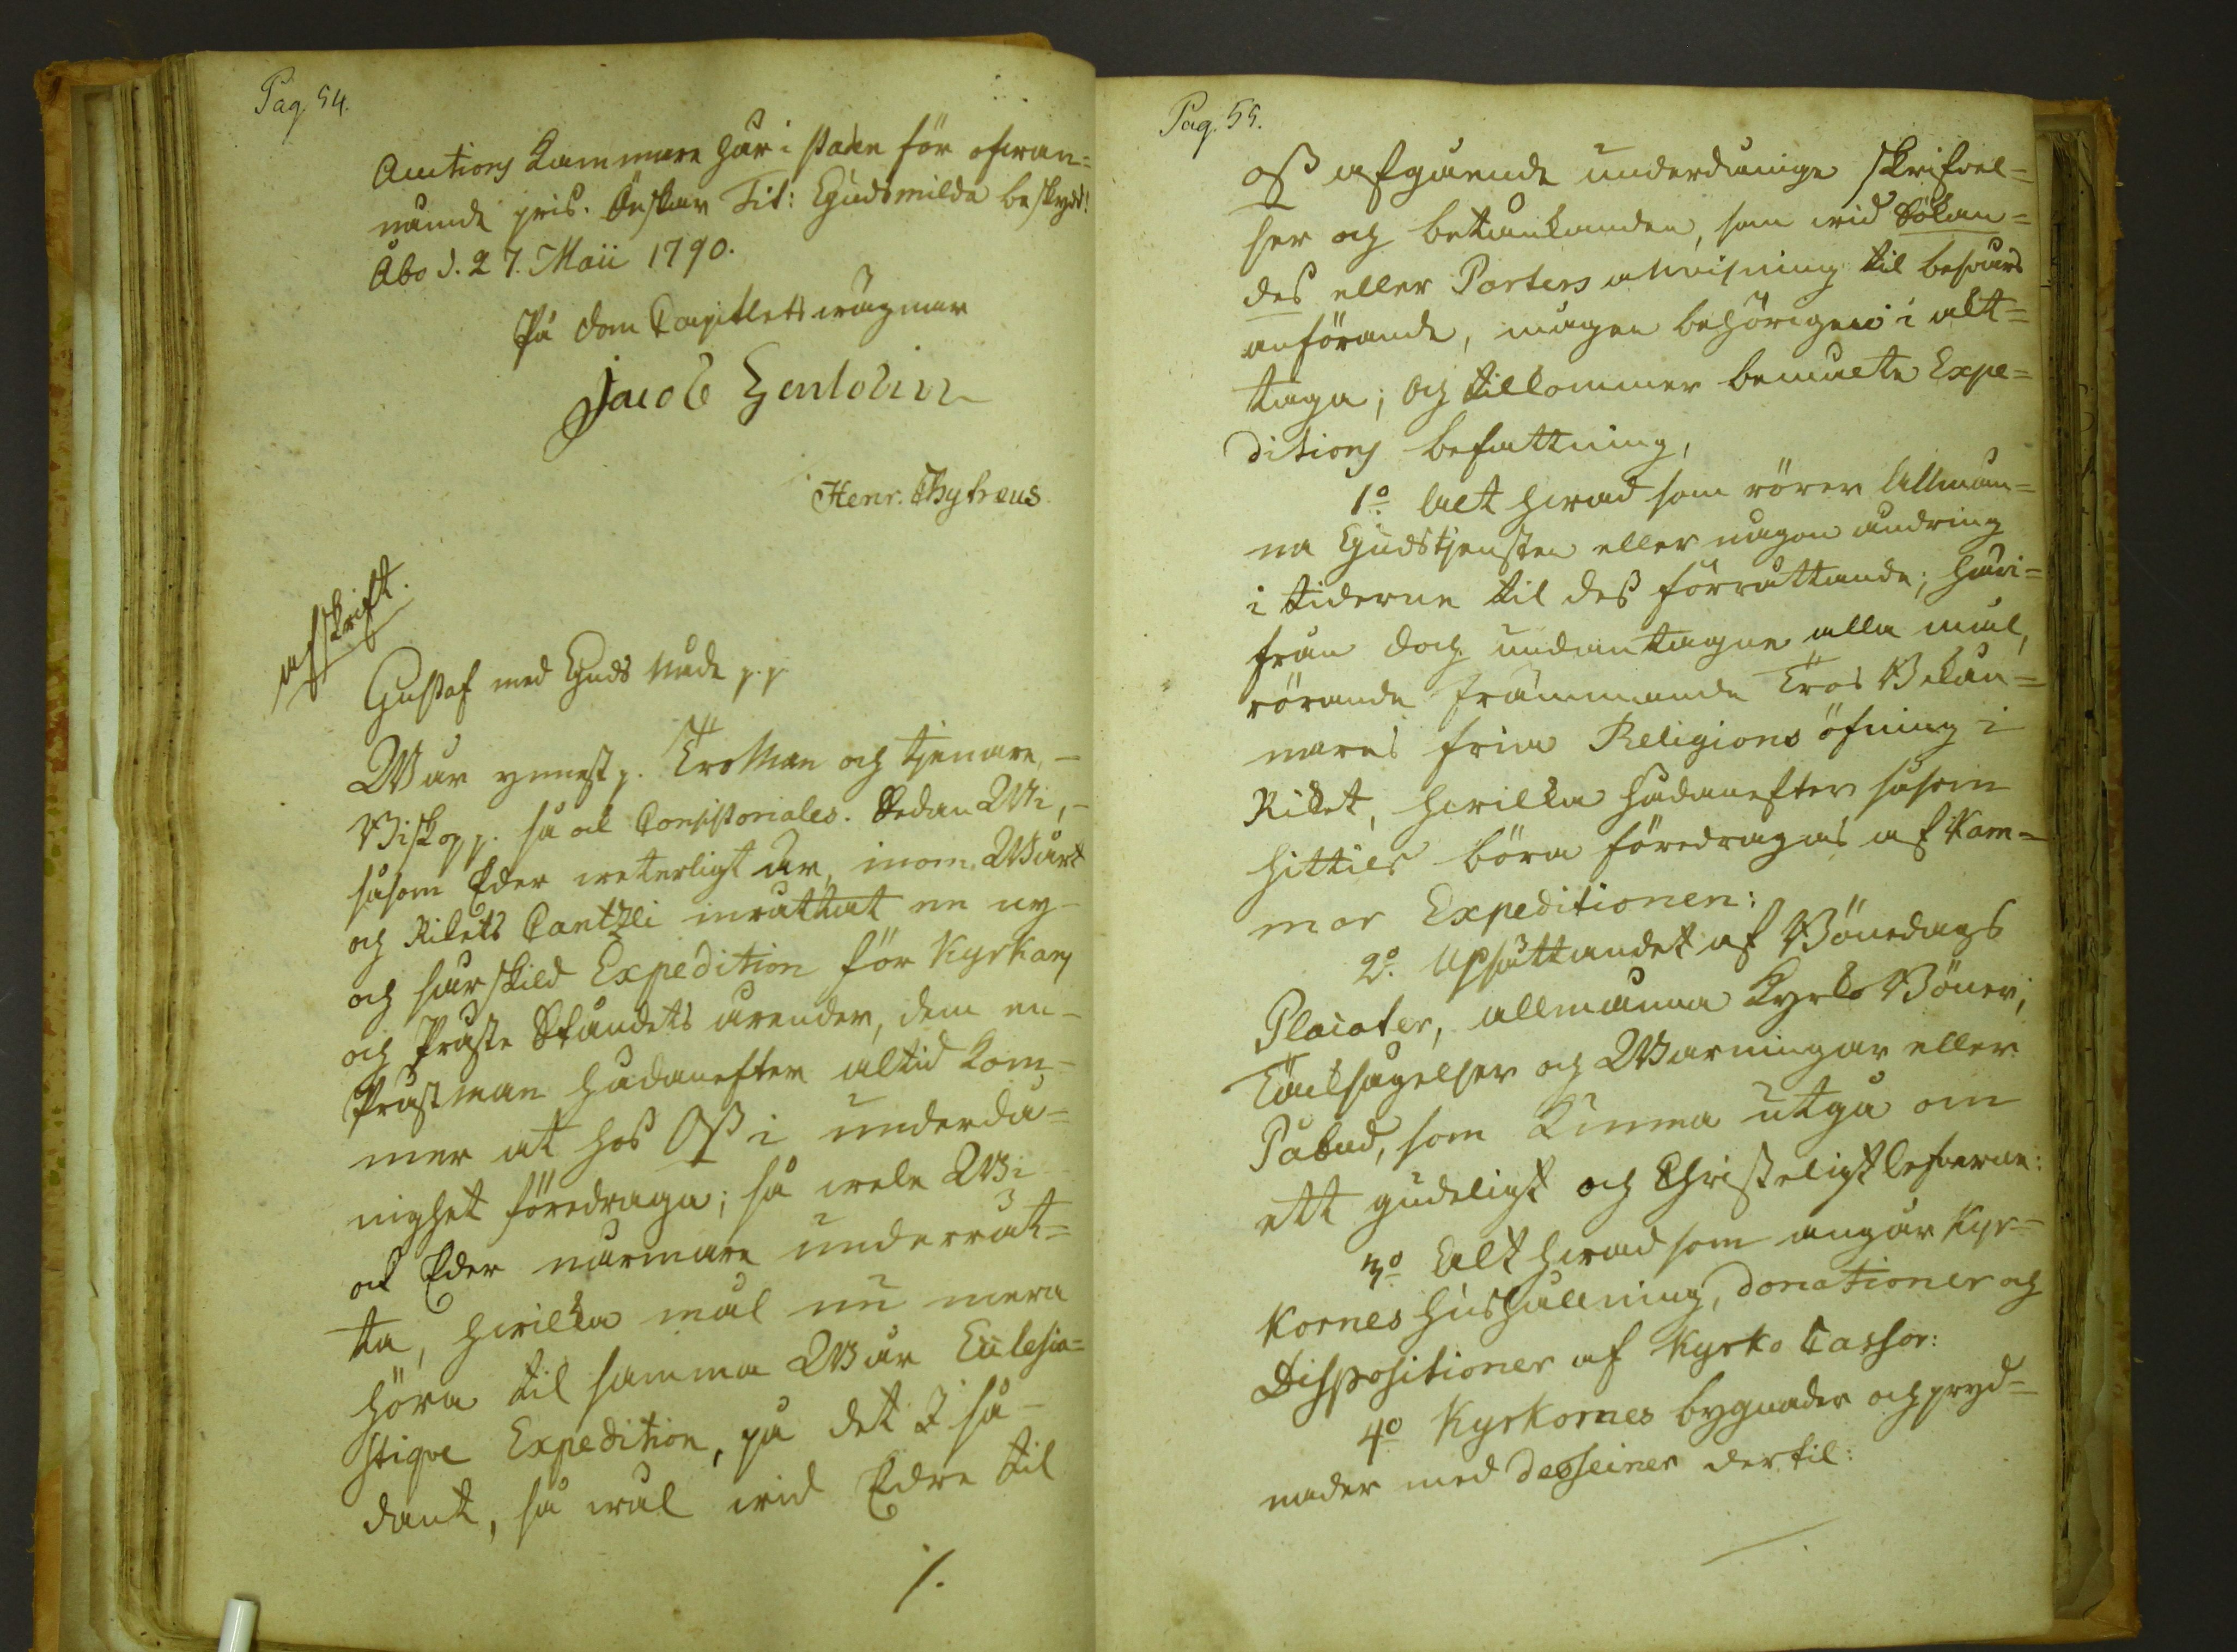 Pag. 54.
Auctions Kammare här i staden för ofwan=
nämde pris. Önskar Tit: Gudsmilda beskydd!
Åbo d. 27. Maii 1790.
På Dom Capitlets wägnar
Jacob Gadolin
Henr. Chytræus.
Afskrift.
Gustaf med Guds Nåde p.p
Wår ynnest p. TroMan och tjenare,
Biskop p. så ock Consistoriales. Sedan Wi,
såsom Eder weterligt är, inom Wårt
och Rikets Cantzli inrättat en ny
och särskild Expedition för Kyrkans
och Präste Ståndets ärender, dem en
Prästman hädanefter altid kom=
mer at hos Oss i underdå=
nighet föredraga; så wele Wi
ock Eder närmare underrät=
ta, hwilka mål nu mera
höra til samma Wår Ecclesia=
stique Expedition, på det I så=
dant, så wäl wid Edre til
/.
Pag. 55.
oss afgående underdånige skrifvel=
ser och betänkanden, som wid Sökan=
des eller Parters anwisning til beswärs
anförande, mågen behörigen i akt=
taga; Och tilkommer bemälte Expe=
ditions befattning,
1o Alt hwad som rörer Allmän=
na Gudstjensten eller någon ändring
i tiderne til des förrättande; häri=
från doch undantagne alla mål,
rörande främmande Tros Bekän=
nares fria Religions öfning i
Riket, hwilka hädanefter såsom
hittils böra föredragas af Kam=
mar Expeditionen:
2o. Upsättandet af Bönedags
Placater, allmänna Kyrko Böner,
Tacksägelser och Warningar eller
Påbud, som kunna utgå om
ett gudeligt och Christeligt lefwerne:
3o Alt hwad som angår Kyr=
kornes hushållning, donationer och
Dispositioner af Kyrko Cassor:
4o Kyrkornes bygnader och pryd=
nader med desseiner dertil: